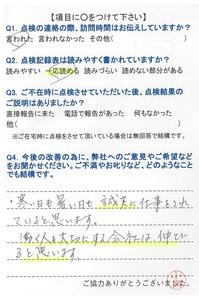 【項目に○をつけて下さい】
Q1. 点検の連絡の際、訪問時間はお伝えしていますか?
言われた 言われなかった その他( )
Q2. 点検記録表は読みやすく書かれていますか?
読みやすい 一応読める 読みづらい 読めない部分がある
Q3. ご不在時に点検させていただいた後、点検結果の
ご説明はありましたか?
直接報告に来た 電話で報告があった 何もなかった
他( )
※ご在宅時に点検をさせて頂いている場合は無回答で結構です。
Q4. 今後の改善の為に、弊社へのご意見やご希望など
をお聞かせください。ご不満やお叱りなど、どのようなこと
でも結構です。
・寒い日も暑い日も、誠実に仕事をされ
ていると思います。
働く人を大切にする会社は、伸びて
ると思います。
ご協力ありがとうございました。